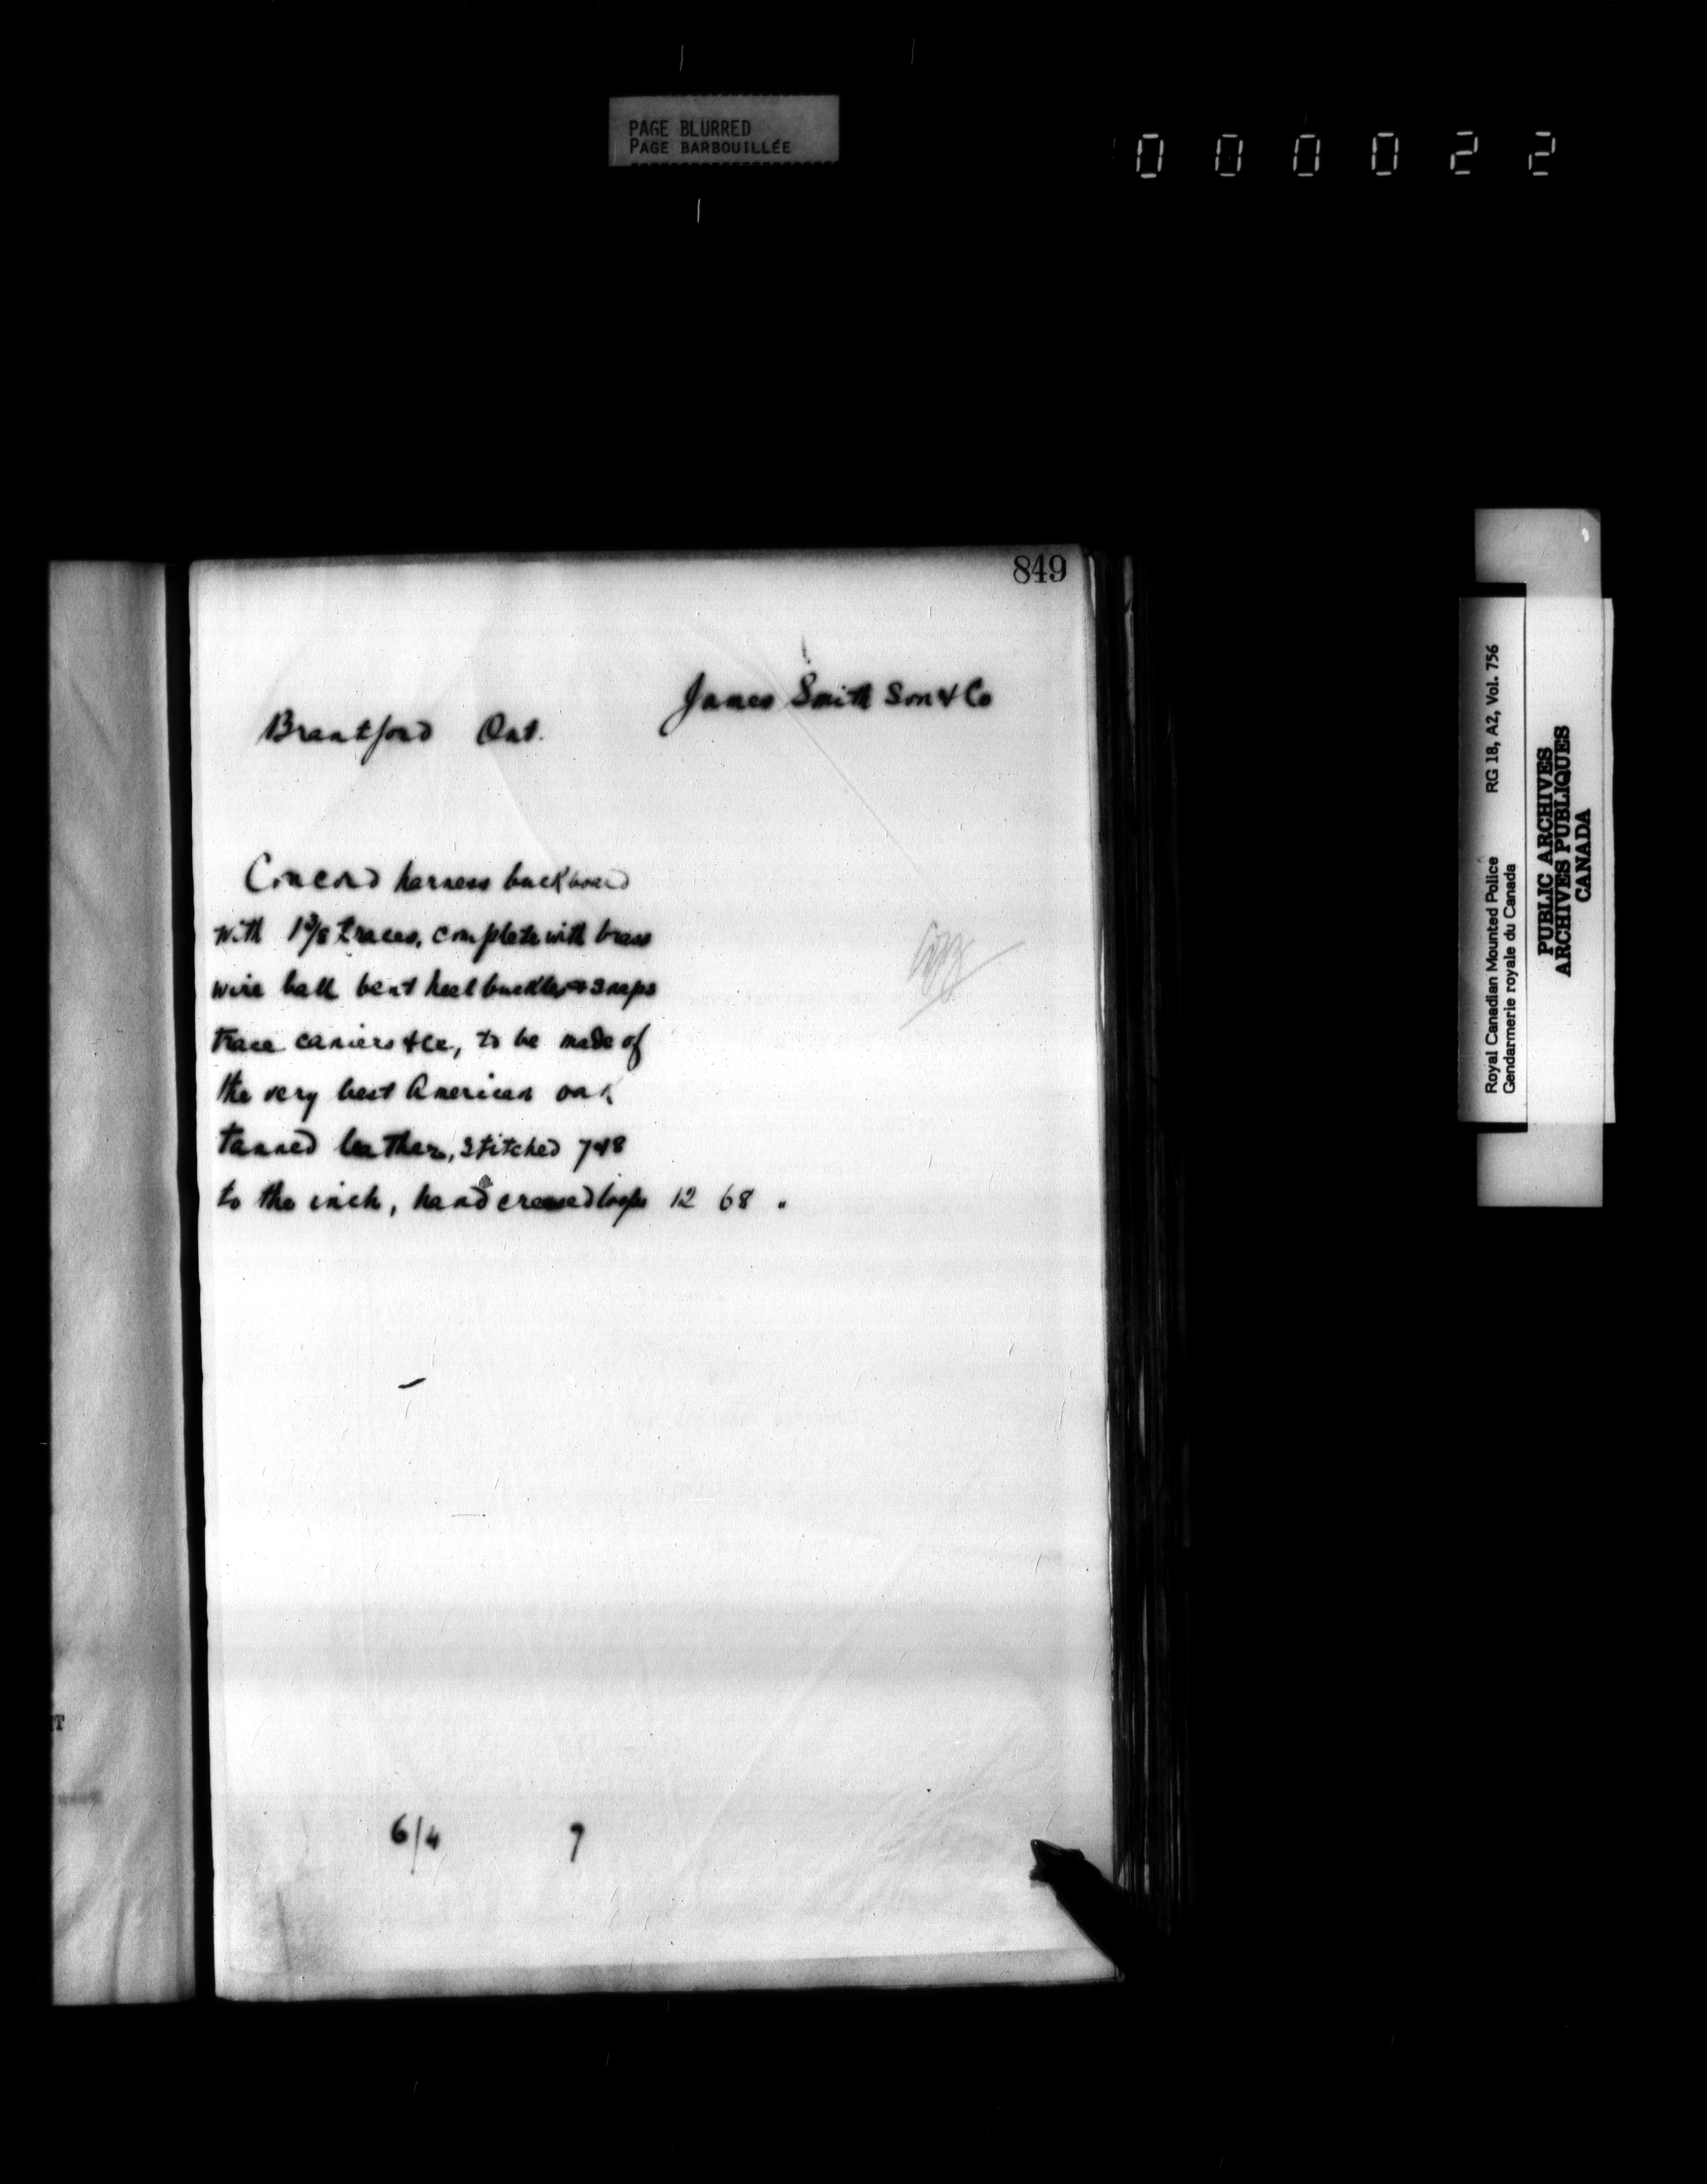 PAGE BLURRED
PAGE BARBOUILLÉE
000022
849
James Smith Son & Co
Brantford Ont.
Concord harness buckboard
with 1 3/8 traces, complete with brass
wire ball bent heel buckles & snaps
trace carriers &c, to be made of
the very best American oak
tanned leather, stitched 7 & 8
to the inch, hand creased loops 12 68 "
6/4 9
Royal Canadian Mounted Police RG 18, A2, Vol. 756
Gendarmerie royale du Canada
PUBLIC ARCHIVES
ARCHIVES PUBLIQUES
CANADA